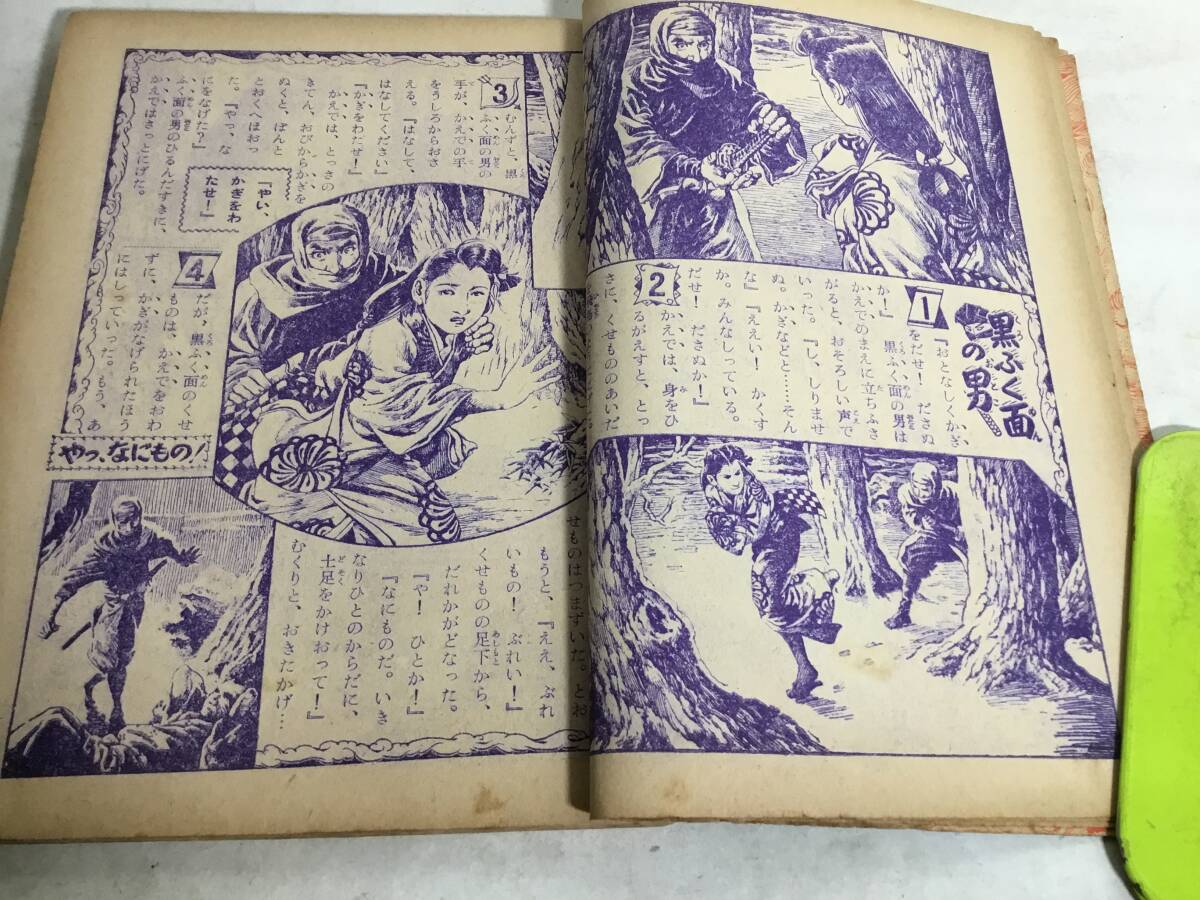 黒ふく面
の男
1
『おとなしくかぎ
をだせ!　ださぬ
か!』
黒ふく面の男は
かえでのまえに立ちふさ
がると、おそろしい声で
いった。『し、しりませ
ぬ。かぎなどと……そん
な』『ええい!　かくす
か。みんなしっている。
だせ!　ださぬか!』
2
かえでは、身をひ
るがえすと、とっ
さに、くせもののあいだ
3
むんずと、黒
ふく面の男の
手が、かえでの手
をうしろからおさ
える。『はなして、
はなしてください』
『かぎをわたせ!』
かえでは、とっさの
きてん、おびからかぎを
ぬくと、ぽんと
とおくへほおっ
た。『やっ、な
にをなげた?』
ふく面の男のひるんだすきに、
かえではさっとにげた。
『やい、
かぎをわ
たせ!』
4
だが、黒ふく面のくせ
ものは、かえでをおわ
ずに、かぎがなげられたほう
にはしっていった。もう、あ
せものはつまずいた。とお
もうと、『ええ、ぶれ
いもの!　ぶれい!』
くせものの足下から、
だれかがどなった。
『や!　ひとか!』
『なにものだ。いき
なりひとのからだに、
土足をかけおって!』
むくりと、おきたかげ…
やっ、なにもの!